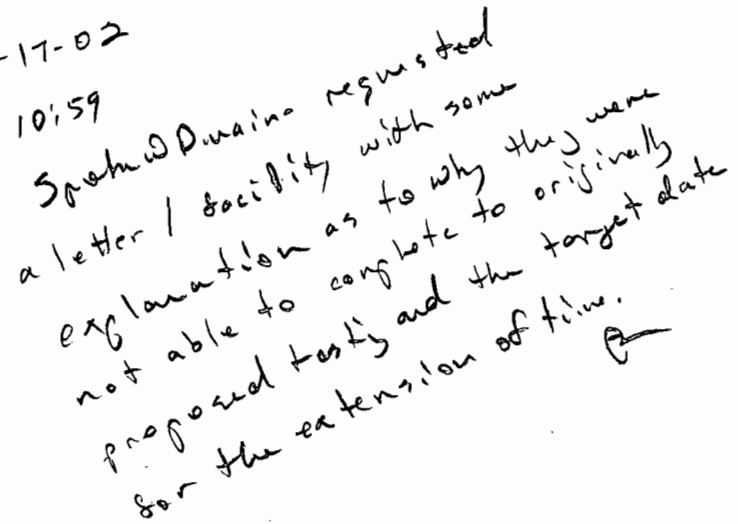 -17-02
10:59
Spoke w Dwaine requested
a letter / facility with some
explanation as to why they were
not able to complete to originally
proposed testing and the target date
for the extension of time.